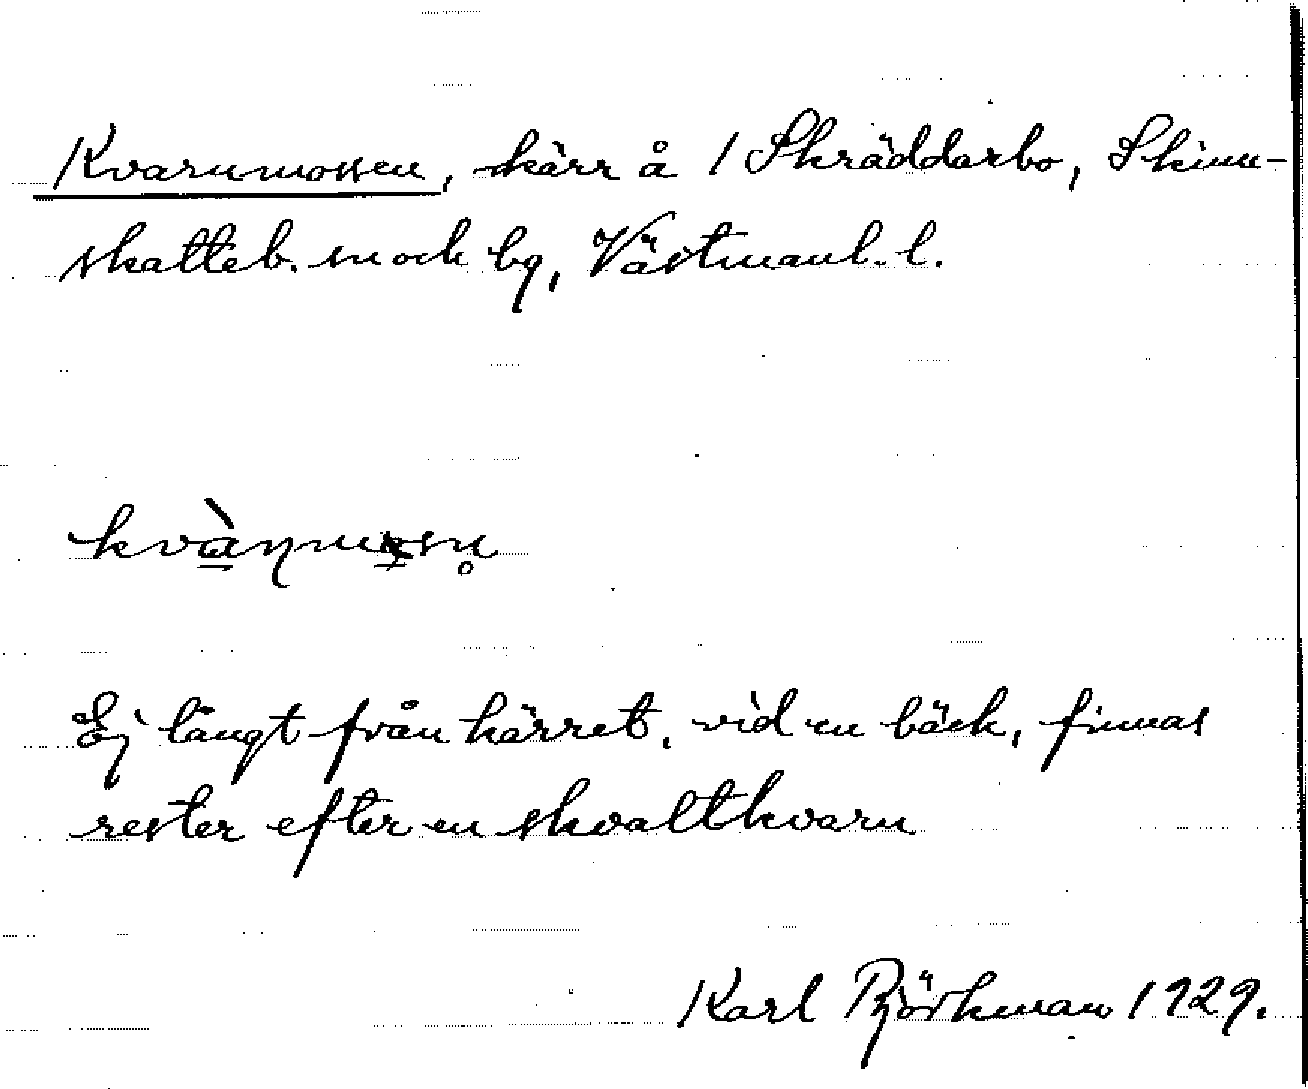 Kvarnmossen, kärr å 1 Skräddarbo, Skinn-
skatteb. sn och bg, Västmanl. l.
Ej långt från kärret, vid en bäck, finnas
rester efter en skvaltkvarn
Karl Björkman 1929.